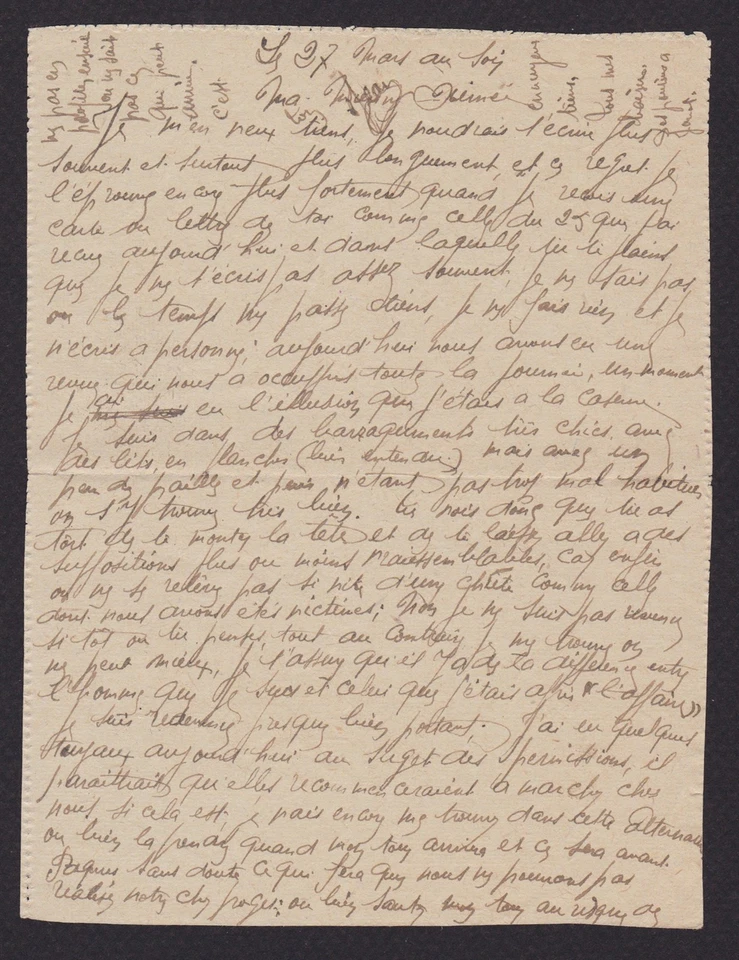 Le 27 Mars au Soir
Ma Aimée
Je m'en veux tiens, je voudrais t'écrire plus
souvent et surtout plus longuement, et ce regret je
l'éprouve encore plus fortement quand je recois une
carte ou lettre de toi comme celle du 25 que j'ai
recue aujourd'hui et dans laquelle tu te plains
que je ne t'écris pas assez souvent, je ne sais pas
ou le temps se passe tiens, je ne fais rien et je
n'écris a personne; aujourd'hui nous avons eu une
revue qui nous a occuppés toute la journée, un moment
Je ai eu l'illusion que j'étais a la caserne.
Je suis dans des barraquements très chics avec
des lits en planches (bien entendu) mais avec un
peu de paille et puis n'étant pas trop mal habitués
on s'y trouve très bien. tu vois donc que tu as
tort de te monter la tête et de te laisser aller a des
suppositions plus ou moins vraissemblables, car enfin
on ne se relève pas si vite d'une chute comme celle
dont nous avons étés victimes; Non je ne suis pas revenu
si tôt ou tu penses, tout au contraire je me trouve on
ne peut mieux, je t'assure qu'il y a de la différence entre
l'homme que je suis et celui que j'étais après "l'affaire"
je suis redevenu presque bien portant; j'ai eu quelques
tuyaux aujourd'hui au sujet des permissions, il
paraitrait qu'elles recommenceraient a marcher chez
nous si cela est je vais encore me trouver dans cette alternative
ou bien la prendre quand mon tour arrive et ce sera avant
Pâques sans doute ce qui fera que nous ne pourrons pas
réaliser notre cher projet; ou bien sauter mon tour au risque de
ne pas en
ou ne sait
pas ce
qui peut
arriver.
c'est
ennuyeux
tiens,
tous mes